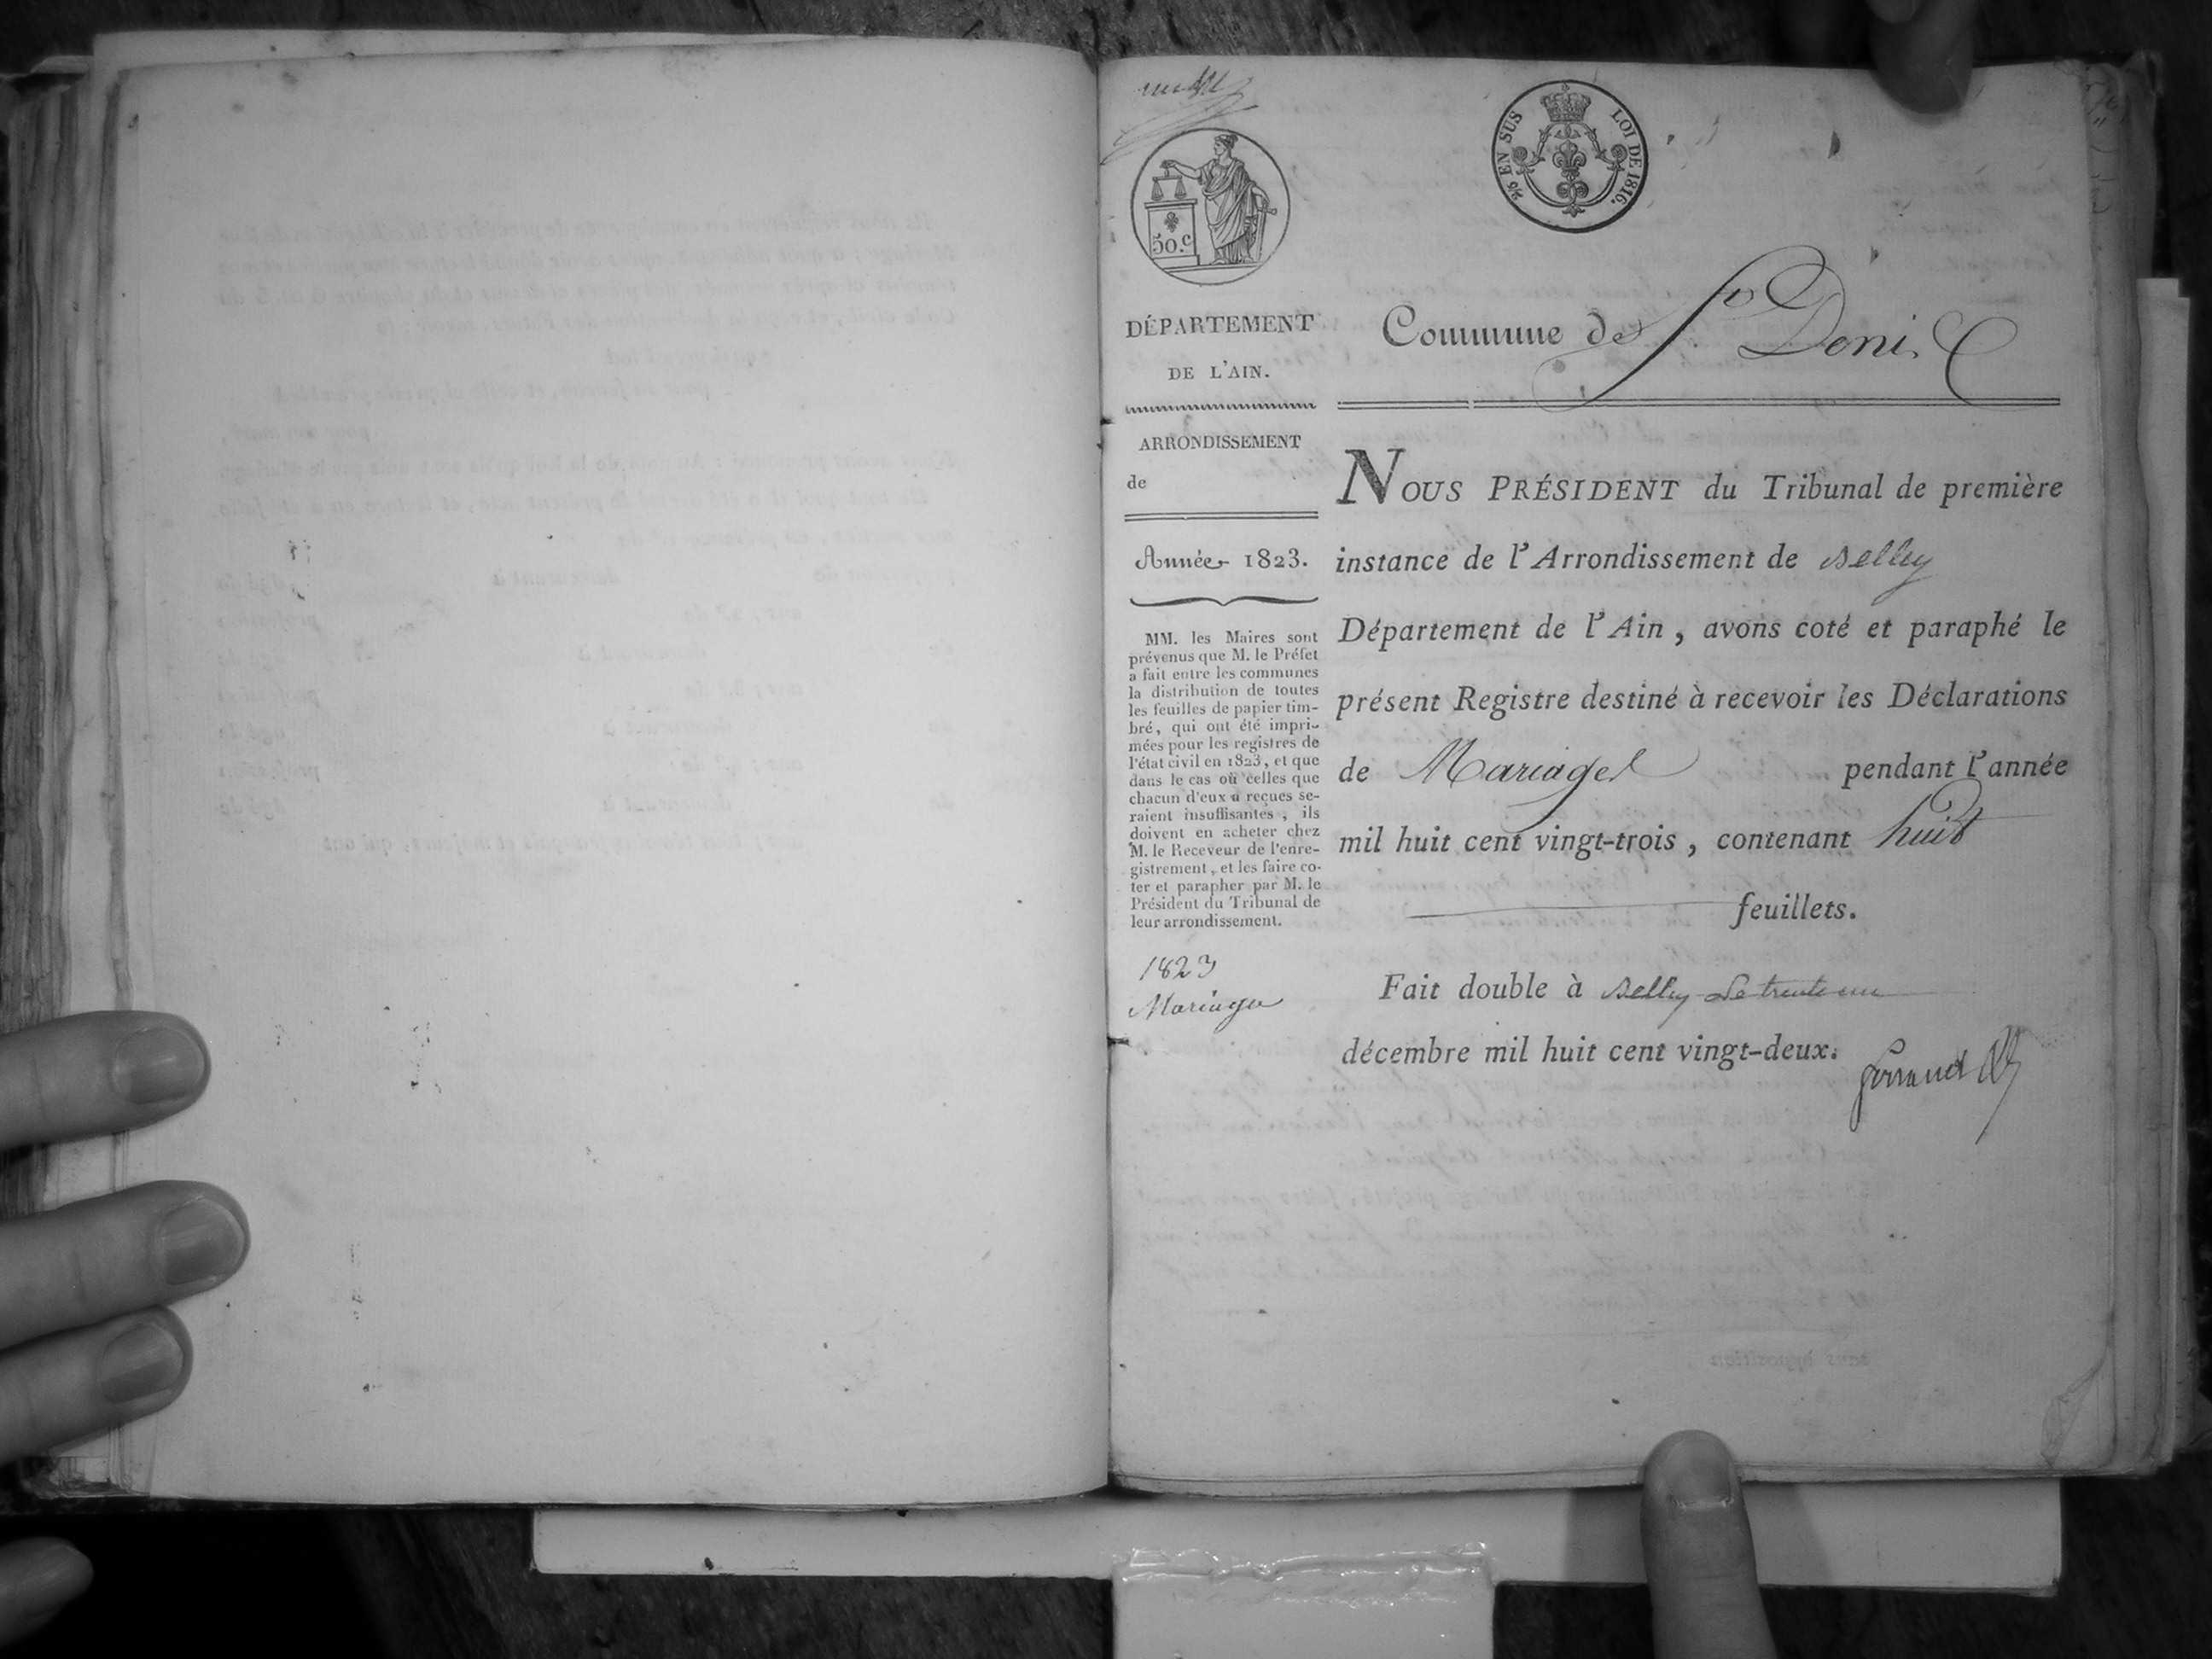 50.c
2/10 EN SUS LOI DE 1816.
DÉPARTEMENT
DE L'AIN.
ARRONDISSEMENT
de
Année 1823.
MM. les Maires sont
prévenus que M. le Préfet
a fait entre les communes
la distribution de toutes
les feuilles de papier tim-
bré, qui ont été impri-
mées pour les registres de
l'état civil en 1823, et que
dans le cas où celles que
chacun d'eux a reçues se-
raient insuffisantes, ils
doivent en acheter chez
M. le Receveur de l'enre-
gistrement, et les faire co-
ter et parapher par M. le
Président du Tribunal de
leur arrondissement.
1823
Mariages
Commune de St. Denis
NOUS PRÉSIDENT du Tribunal de première
instance de l'Arrondissement de Belley
Département de l'Ain, avons coté et paraphé le
présent Registre destiné à recevoir les Déclarations
de Mariages pendant l'année
mil huit cent vingt-trois, contenant huit
feuillets.
Fait double à Belley le trente un
décembre mil huit cent vingt-deux.